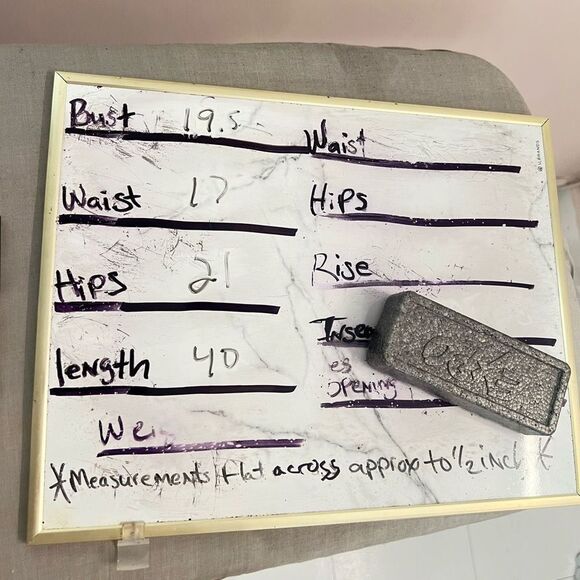 Bust 19.5
Waist 17
Hips 21
length 40
We
Waist
Hips
Rise
Inse
es
opening
*Measurements flat across approx to 1/2 inch *